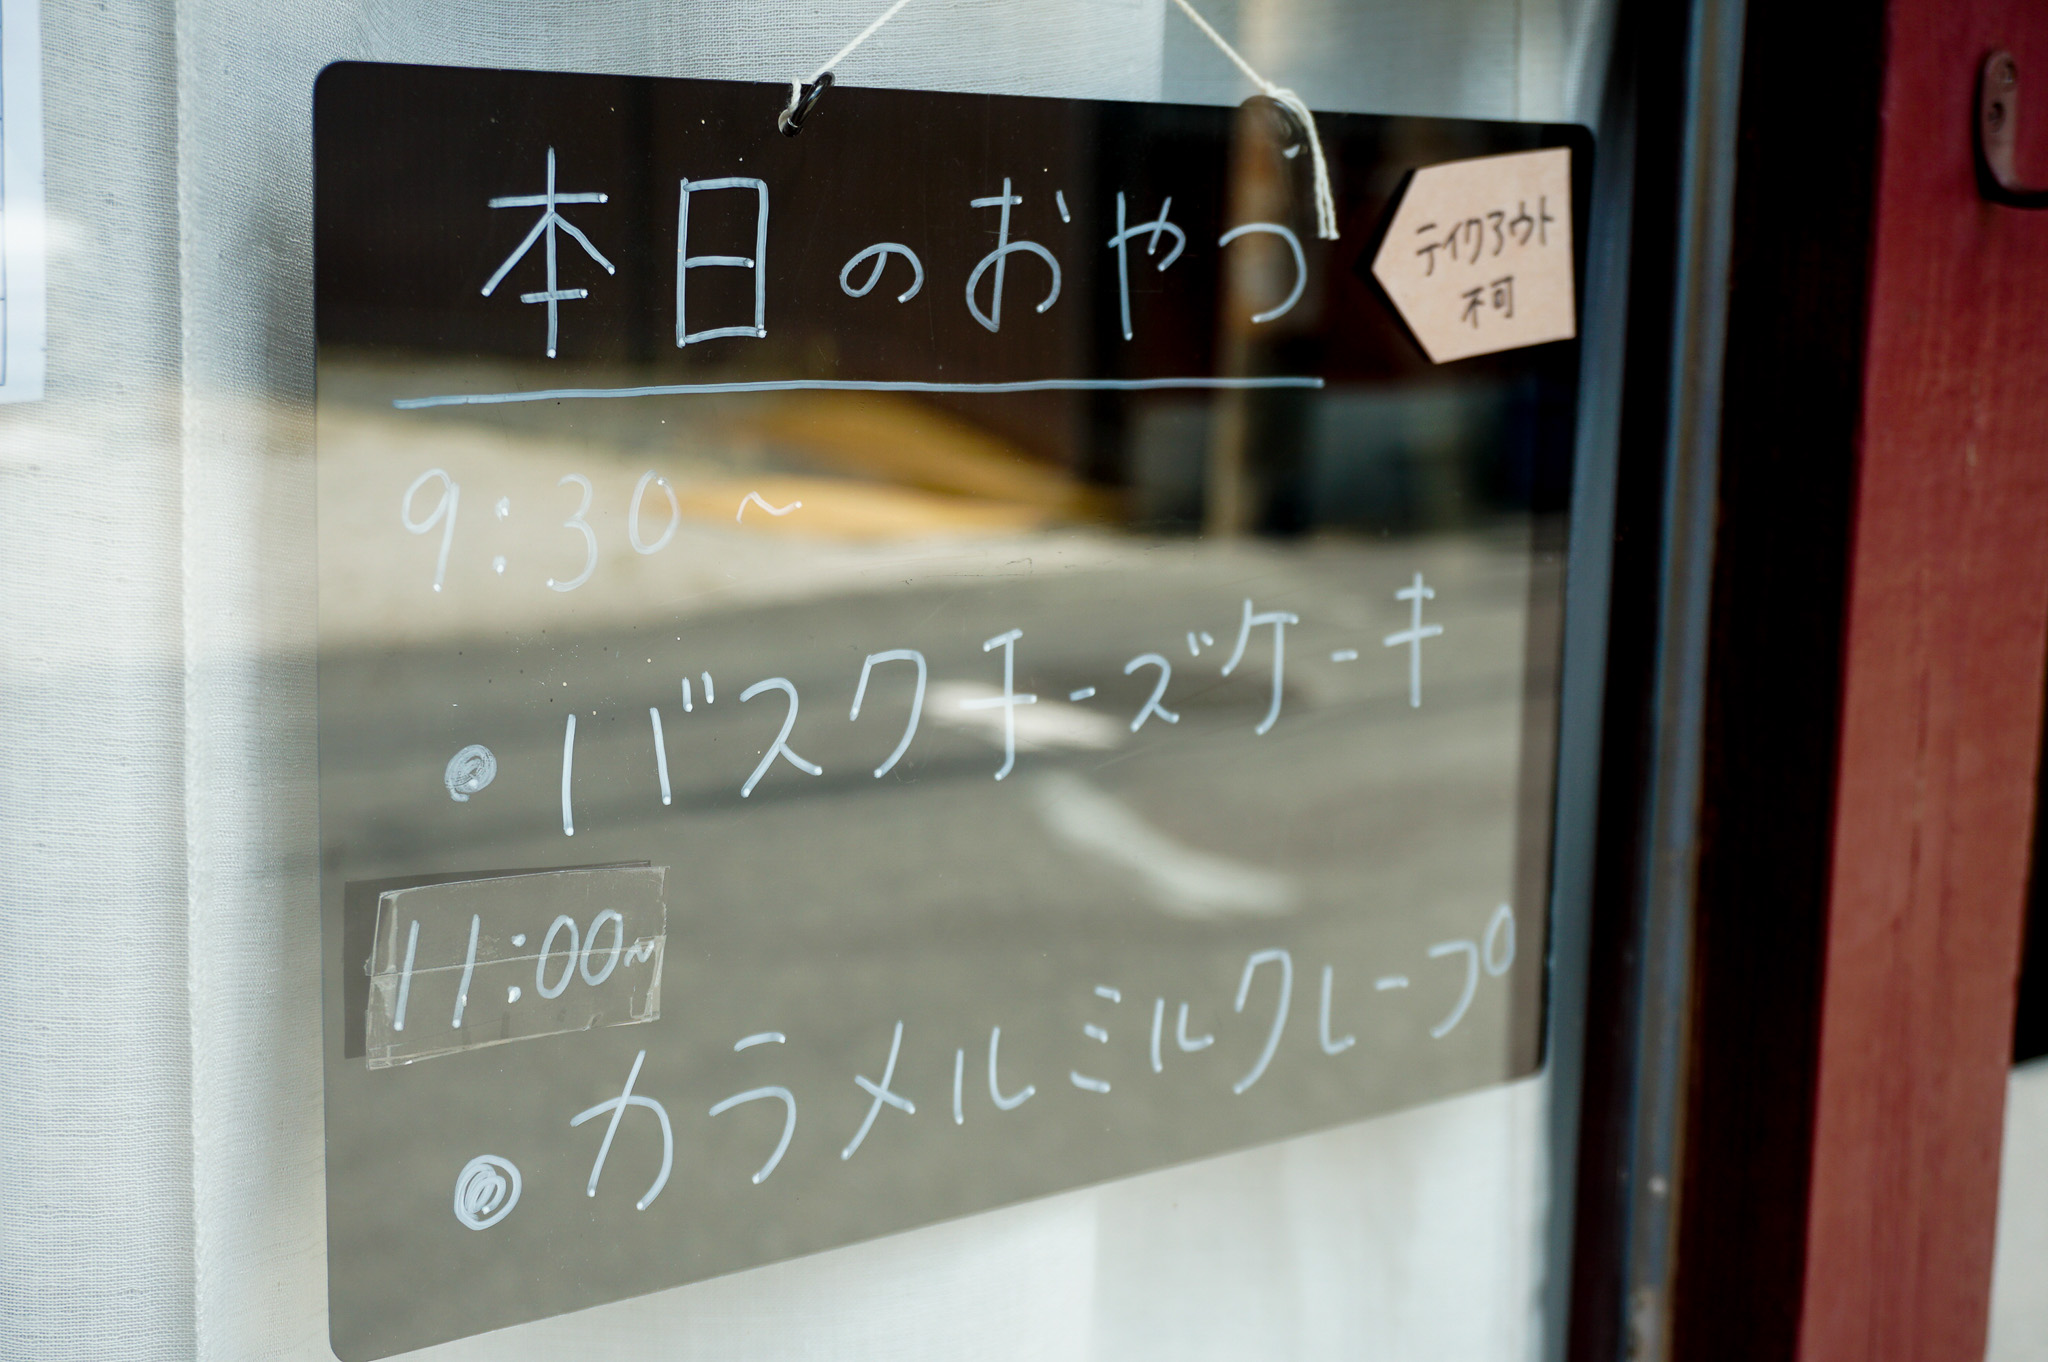 本日のおやつ
テイクアウト
不可
9:30～
・バスクチーズケーキ
11:00～
・カラメルミルクレープ